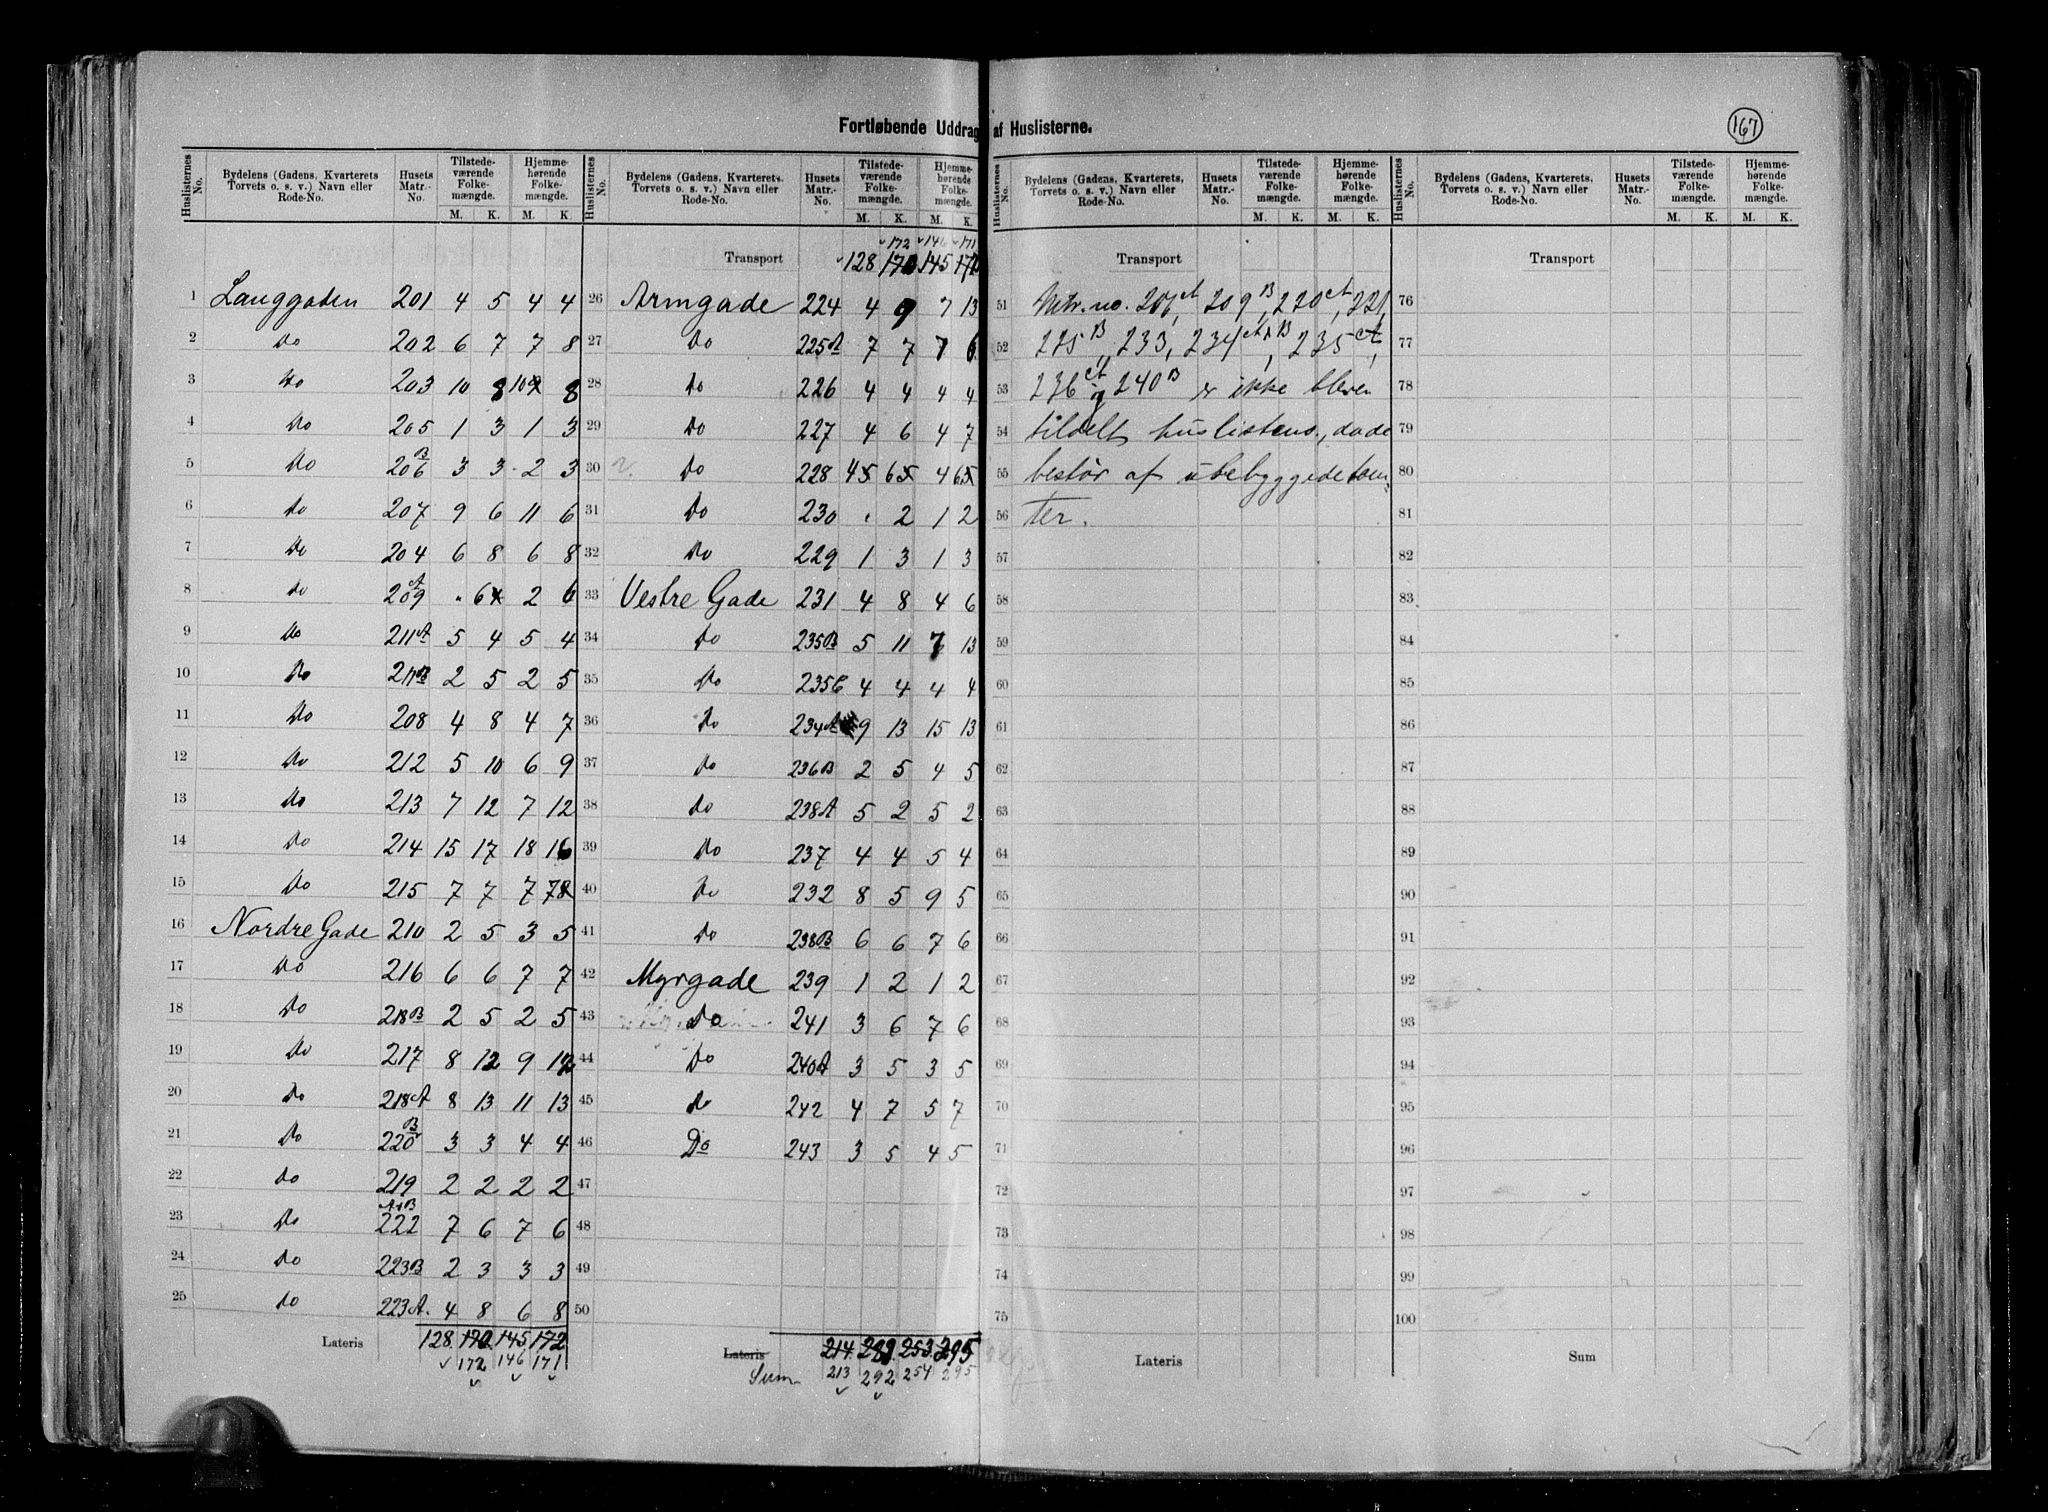 Fortløbende Uddrag af Huslisterne.
167
Huslisternes No. | Bydelens (Gadens, Kvarterets, Torvets o. s. v.) Navn eller Rode-No. | Husets Matr.-No. | Tilstedeværende Folkemængde. M. K. | Hjemmehørende Folkemængde. M. K.
1 Langgaten 201 4 5 4 4
2 Do 202 6 7 7 8
3 Do 203 10 8 10 8
4 Do 205 1 3 1 3
5 Do 206 B 3 3 2 3
6 Do 207 9 6 11 6
7 Do 204 6 8 6 8
8 Do 209 A " 6 2 6
9 Do 211 A 5 4 5 4
10 Do 211 B 2 5 2 5
11 Do 208 4 8 4 7
12 Do 212 5 10 6 9
13 Do 213 7 12 7 12
14 Do 214 15 17 18 16
15 Do 215 7 7 7 7
16 Nordre Gade 210 2 5 3 5
17 Do 216 6 6 7 7
18 Do 218 B 2 5 2 5
19 Do 217 8 12 9 12
20 Do 218 A 8 13 11 13
21 Do 220 B 3 3 4 4
22 Do 219 2 2 2 2
23 Do 222 A+B 7 6 7 6
24 Do 223 B 2 3 3 3
25 Do 223 A. 4 8 6 8
Lateris 128. 170. 145. 172
172 146 171
172 146 171
Transport 128 170 145 172
26 Armgade 224 4 9 7 13
27 Do 225 A 7 7 7 6
28 Do 226 4 4 4 4
29 Do 227 4 6 4 7
30 Do 228 4 6 4 6
31 Do 230 " 2 1 2
32 Do 229 1 3 1 3
33 Vestre Gade 231 4 8 4 6
34 Do 235 B 5 11 7 13
35 Do 235 C 4 4 4 4
36 Do 234 A 9 13 15 13
37 Do 236 B 2 5 4 5
38 Do 238 A 5 2 5 2
39 Do 237 4 4 5 4
40 Do 232 8 5 9 5
41 Do 238 B 6 6 7 6
42 Myrgade 239 1 2 1 2
43 Do 241 3 6 7 6
44 Do 240 A 3 5 3 5
45 Do 242 4 7 5 7
46 Do 243 3 5 4 5
47
48
49
50
Lateris 214. 289. 253. 295
Sum 213 292 254 295
Huslisternes No. | Bydelens (Gadens, Kvarterets, Torvets o. s. v.) Navn eller Rode-No. | Husets Matr.-No. | Tilstedeværende Folkemængde. M. K. | Hjemmehørende Folkemængde. M. K.
Transport
51 Mtr. no. 206 A, 209 B, 220 A, 221,
52 225 B, 233, 234 A+B, 235 A,
53 236 A og 240 B er ikke bleven
54 tildelt huslisteno., da de
55 bestør af ubebyggede tom-
56 ter.
57
58
59
60
61
62
63
64
65
66
67
68
69
70
71
72
73
74
75
Lateris
Transport
76
77
78
79
80
81
82
83
84
85
86
87
88
89
90
91
92
93
94
95
96
97
98
99
100
Sum